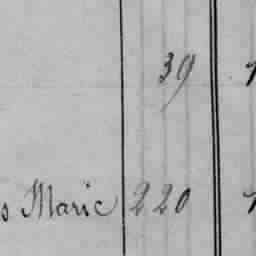 39
s Marie 220